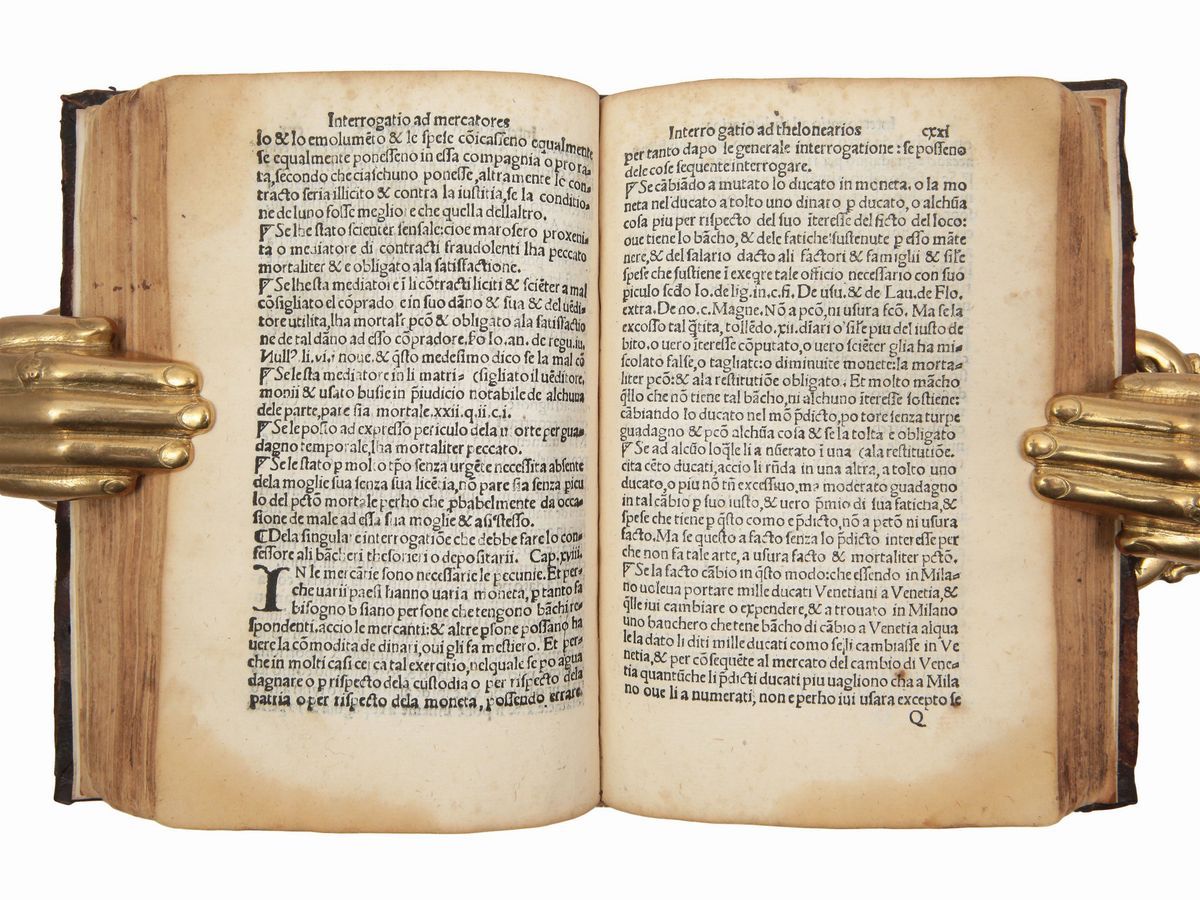 Interrogatio ad mercatores
lo & lo emolumẽto & le spese cõicasseno equalmente
se equalmente ponesseno in essa compagnia o pro ra-
ta, secondo che ciaschuno ponesse, altramente lo con-
tracto seria illicito & contra la iustitia, se la conditio-
ne de luno fosse meglior e che quella dell altro.
¶ Se lhe stato scienter sensale: cioe marosero proxeni-
ta o mediatore di contracti fraudolenti lha peccato
mortaliter & e obligato ala satisfactione.
¶ Se lhe sta mediator e ĩ li cõtracti liciti & sciẽter a mal
cõsigliato el cõprado e in suo dãno & sua & del uẽdi-
tore utilita, lha mortal pcõ & obligato ala satisfactio
ne de tal dãno ad esso cõpradore. Fo Io. an. de regu. iu.
Null? li. vi. & q̃sto medesimo dico se la mal cõ
¶ Se le sta mediator e in li matri- (sigliato il uẽditore.
monii & usato busie in p̃iudicio notabile de alchuna
dele parte, pare sia mortale. xxii. q. ii. c. i.
¶ Se le posto ad expresso periculo dela morte per gua-
dagno temporale, lha mortaliter peccato.
¶ Se le stato p molto tp̃o senza urgẽte necessita absente
dela moglie sua senza sua licẽtia, nõ pare sia senza picu
lo del pctõ mortale perho che p̱babelmente da occa-
sione de male ad essa sua moglie & a si stesso.
¶ Dela singulare interrogatiõe che debbe fare lo con-
fessore ali bãcheri thesorieri o depositarii. Cap. xviii.
IN le mercãtie sono necessarie le pecunie. Et per-
che uarii paesi hanno uaria moneta, p tanto fa
bisogno b siano persone che tengono bãchi re-
spondenti. accio le mercanti: & altre p̱sone possano ha
uere la cõmodita de dinari, oui gli fa mestiero. Et per-
che in molti casi cerca tal exercitio, nel quale se po a gua
dagnare o p rispecto dela custodia o per rispecto dela
patria o per rispecto dela moneta, possendo errare,
Interrogatio ad thelonearios cxxi
per tanto dapo le generale interrogatione: se posseno
dele cose sequente interrogare.
¶ Se cãbiãdo a mutato lo ducato in moneta. o la mo
neta nel ducato a tolto uno dinaro p ducato, o alchũa
cosa piu per rispecto del suo ĩteresse del ficto del loco:
oue tiene lo bãcho, & dele fatiche sustenute p esso mãte
nere, & del salario dacto ali factori & famigli & sile
spese che sustiene ĩ exeqre tale officio necessario con suo
piculo scdo Io. de lig. in. c. fi. De usu. & de Lau. de Flo.
extra. De no. c. Magne. Nõ a pcõ, ni usura fcõ. Ma se la
excosso tal q̃tita, tollẽdo. xii. dĩari o sile piu del iusto de
bito. o uero ĩteresse cõputato, o uero sciẽter glia ha mi-
scolato false, o tagliate: o diminuite monete: la morta-
liter pcõ: & ala restitutiõe obligato. Et molto mãcho
q̃llo che nõ tiene tal bãcho, ni alchuno ĩteresse sostiene:
cãbiando lo ducato nel mõ p̃dicto, po tore senza turpe
guadagno & pcõ alchũa cosa & se la tolta e obligato
¶ Se ad alcũo loq̃le li a nũerato ĩ una (ala restitutiõe.
cita cẽto ducati, accio li rẽda in una altra, a tolto uno
ducato, o piu nõ tñ excessiuo, ma moderato guadagno
in tal cãbio p suo iusto, & uero p̃mio di sua faticha, &
spese che tiene p q̃sto como e p̃dicto, nõ a pctõ ni usura
facto. Ma se questo a facto senza lo p̃dicto interesse per
che non fa tale arte, a usura facto & mortaliter pctõ.
¶ Se la facto cãbio in q̃sto modo: che essendo in Mila-
no uoleua portare mille ducati Venetiani a Venetia, &
q̃lle iui cambiare o expendere, & a trouato in Milano
uno banchero che tene bãcho di cãbio a Venetia al qua
le la dato li diti mille ducati como se li cambiasse in Ve
netia, & per cõsequẽte al mercato del cambio di Vene-
tia quantũche li p̃dicti ducati piu uagliono cha a Mila
no oue li a numerati, non e perho iui usura excepto se
Q